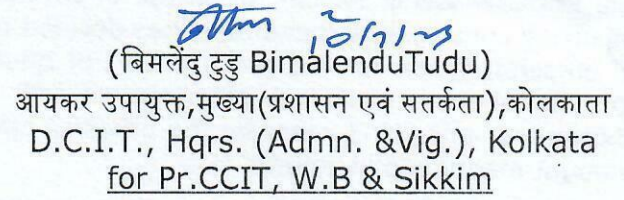 (बिमलेंदु टुडु BimalenduTudu)
आयकर उपायुक्त,मुख्या(प्रशासन एवं सतर्कता),कोलकाता
D.C.I.T., Hqrs. (Admn. &Vig.), Kolkata
for Pr.CCIT, W.B & Sikkim